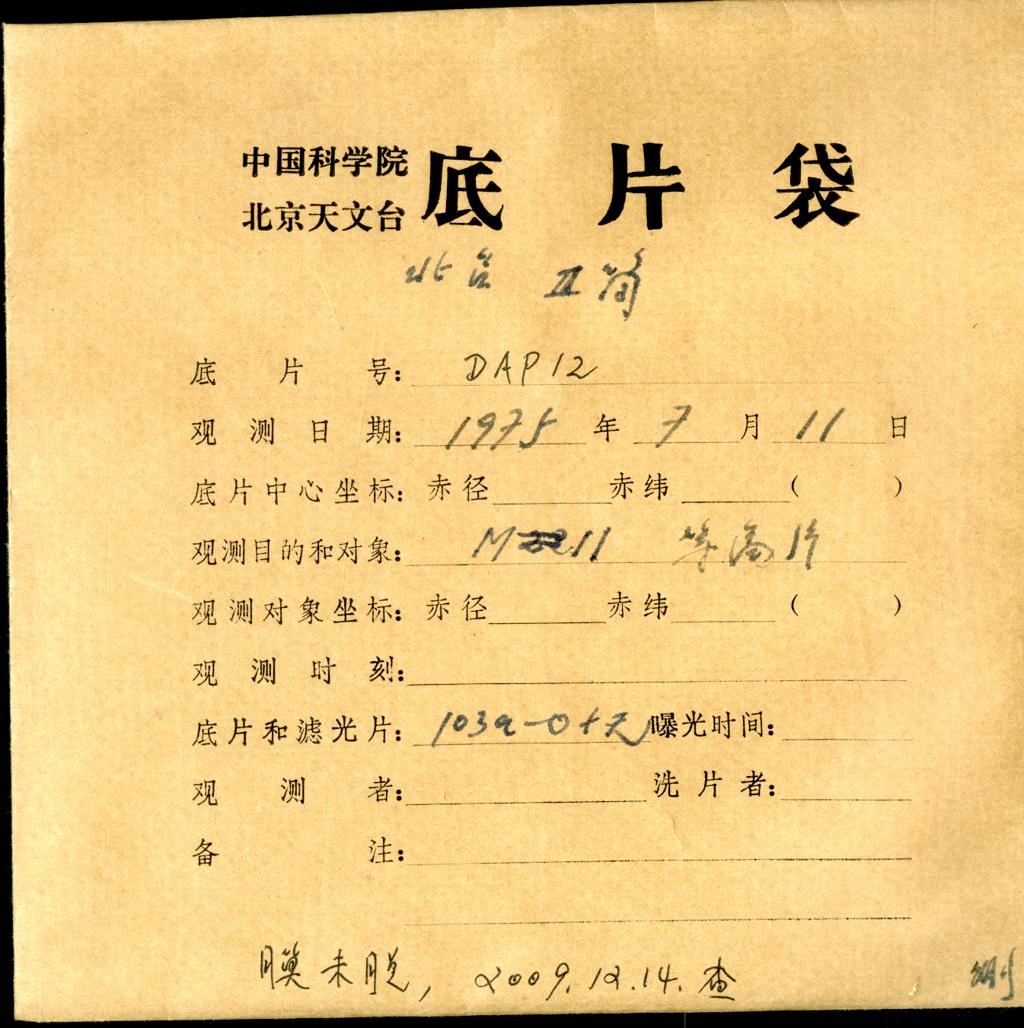 中国科学院 底片袋
北京天文台
北台 II筒
底片号: DAP12
观测日期: 1975 年 7 月 11 日
底片中心坐标: 赤径 赤纬 ( )
观测目的和对象: M 11 等高片
观测对象坐标: 赤径 赤纬 ( )
观测时刻:
底片和滤光片: 103a-O+无 曝光时间:
观测者: 洗片者:
备注:
膜未脱, 2009.12.14.查